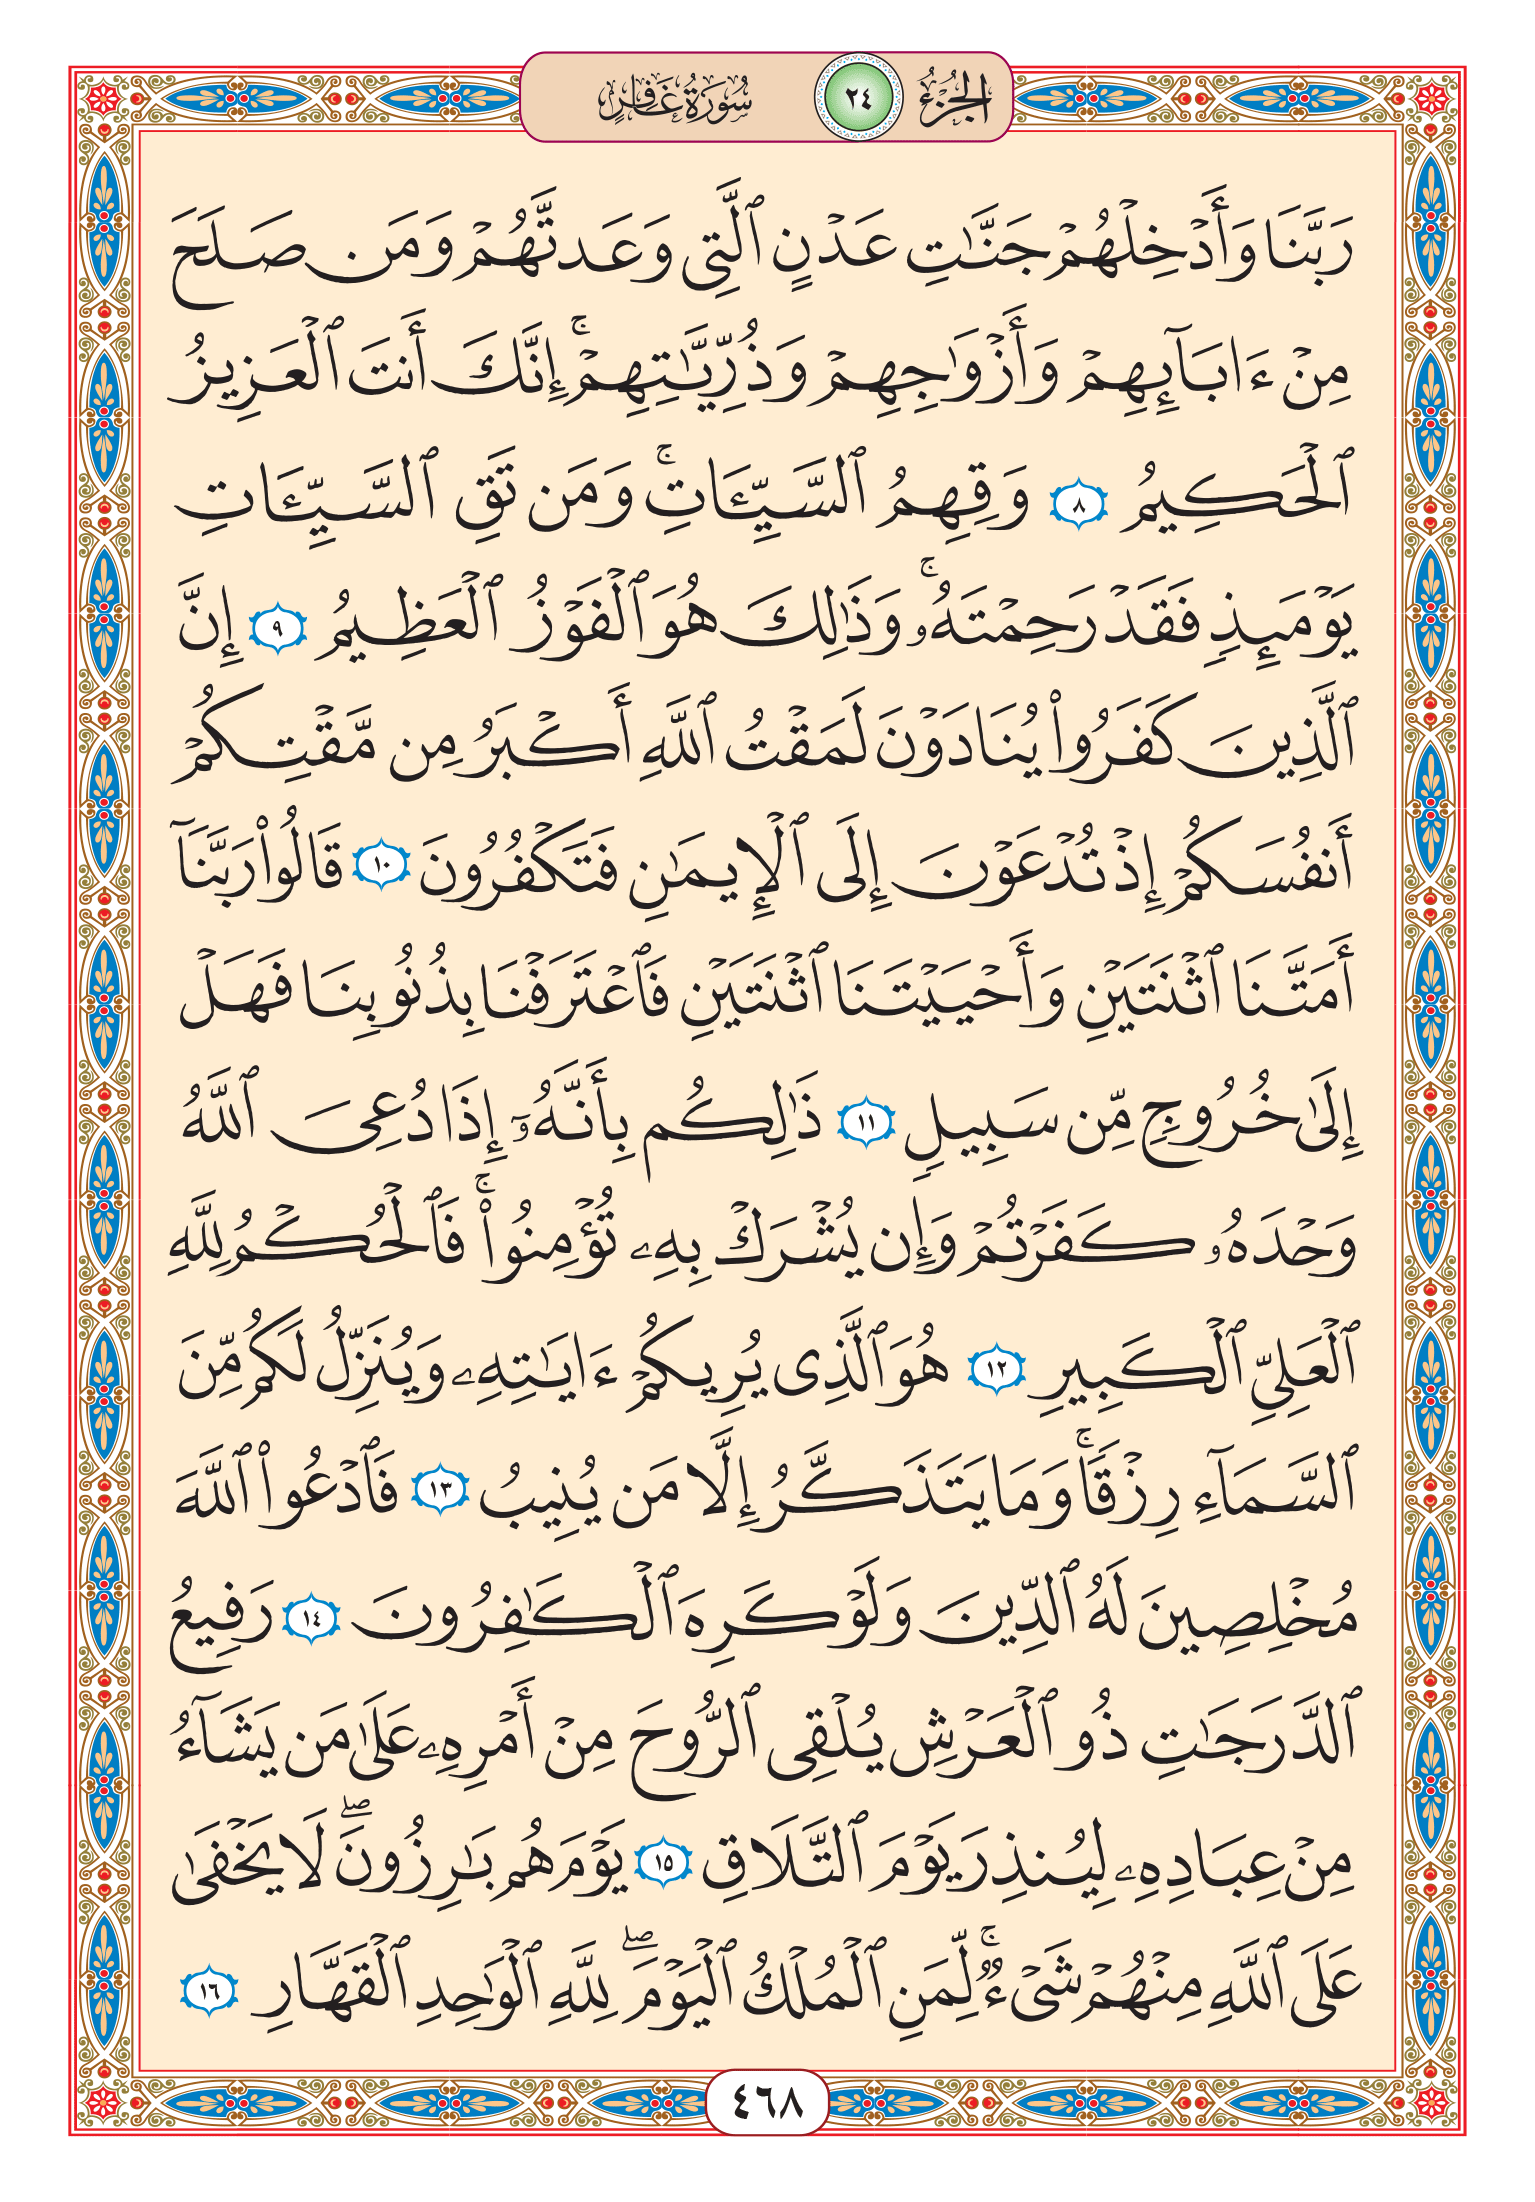 الجزء ٢٤ سورة غافر
رَبَّنَا وَأَدۡخِلۡهُمۡ جَنَّٰتِ عَدۡنٍ ٱلَّتِي وَعَدتَّهُمۡ وَمَن صَلَحَ
مِنۡ ءَابَآئِهِمۡ وَأَزۡوَٰجِهِمۡ وَذُرِّيَّٰتِهِمۡۚ إِنَّكَ أَنتَ ٱلۡعَزِيزُ
ٱلۡحَكِيمُ ٨ وَقِهِمُ ٱلسَّيِّـَٔاتِۚ وَمَن تَقِ ٱلسَّيِّـَٔاتِ
يَوۡمَئِذٖ فَقَدۡ رَحِمۡتَهُۥۚ وَذَٰلِكَ هُوَ ٱلۡفَوۡزُ ٱلۡعَظِيمُ ٩ إِنَّ
ٱلَّذِينَ كَفَرُواْ يُنَادَوۡنَ لَمَقۡتُ ٱللَّهِ أَكۡبَرُ مِن مَّقۡتِكُمۡ
أَنفُسَكُمۡ إِذۡ تُدۡعَوۡنَ إِلَى ٱلۡإِيمَٰنِ فَتَكۡفُرُونَ ١٠ قَالُواْ رَبَّنَآ
أَمَتَّنَا ٱثۡنَتَيۡنِ وَأَحۡيَيۡتَنَا ٱثۡنَتَيۡنِ فَٱعۡتَرَفۡنَا بِذُنُوبِنَا فَهَلۡ
إِلَىٰ خُرُوجٖ مِّن سَبِيلٖ ١١ ذَٰلِكُم بِأَنَّهُۥٓ إِذَا دُعِيَ ٱللَّهُ
وَحۡدَهُۥ كَفَرۡتُمۡ وَإِن يُشۡرَكۡ بِهِۦ تُؤۡمِنُواْۚ فَٱلۡحُكۡمُ لِلَّهِ
ٱلۡعَلِيِّ ٱلۡكَبِيرِ ١٢ هُوَ ٱلَّذِي يُرِيكُمۡ ءَايَٰتِهِۦ وَيُنَزِّلُ لَكُم مِّنَ
ٱلسَّمَآءِ رِزۡقٗاۚ وَمَا يَتَذَكَّرُ إِلَّا مَن يُنِيبُ ١٣ فَٱدۡعُواْ ٱللَّهَ
مُخۡلِصِينَ لَهُ ٱلدِّينَ وَلَوۡ كَرِهَ ٱلۡكَٰفِرُونَ ١٤ رَفِيعُ
ٱلدَّرَجَٰتِ ذُو ٱلۡعَرۡشِ يُلۡقِي ٱلرُّوحَ مِنۡ أَمۡرِهِۦ عَلَىٰ مَن يَشَآءُ
مِنۡ عِبَادِهِۦ لِيُنذِرَ يَوۡمَ ٱلتَّلَاقِ ١٥ يَوۡمَ هُم بَٰرِزُونَۖ لَا يَخۡفَىٰ
عَلَى ٱللَّهِ مِنۡهُمۡ شَيۡءٞۚ لِّمَنِ ٱلۡمُلۡكُ ٱلۡيَوۡمَۖ لِلَّهِ ٱلۡوَٰحِدِ ٱلۡقَهَّارِ ١٦
٤٦٨